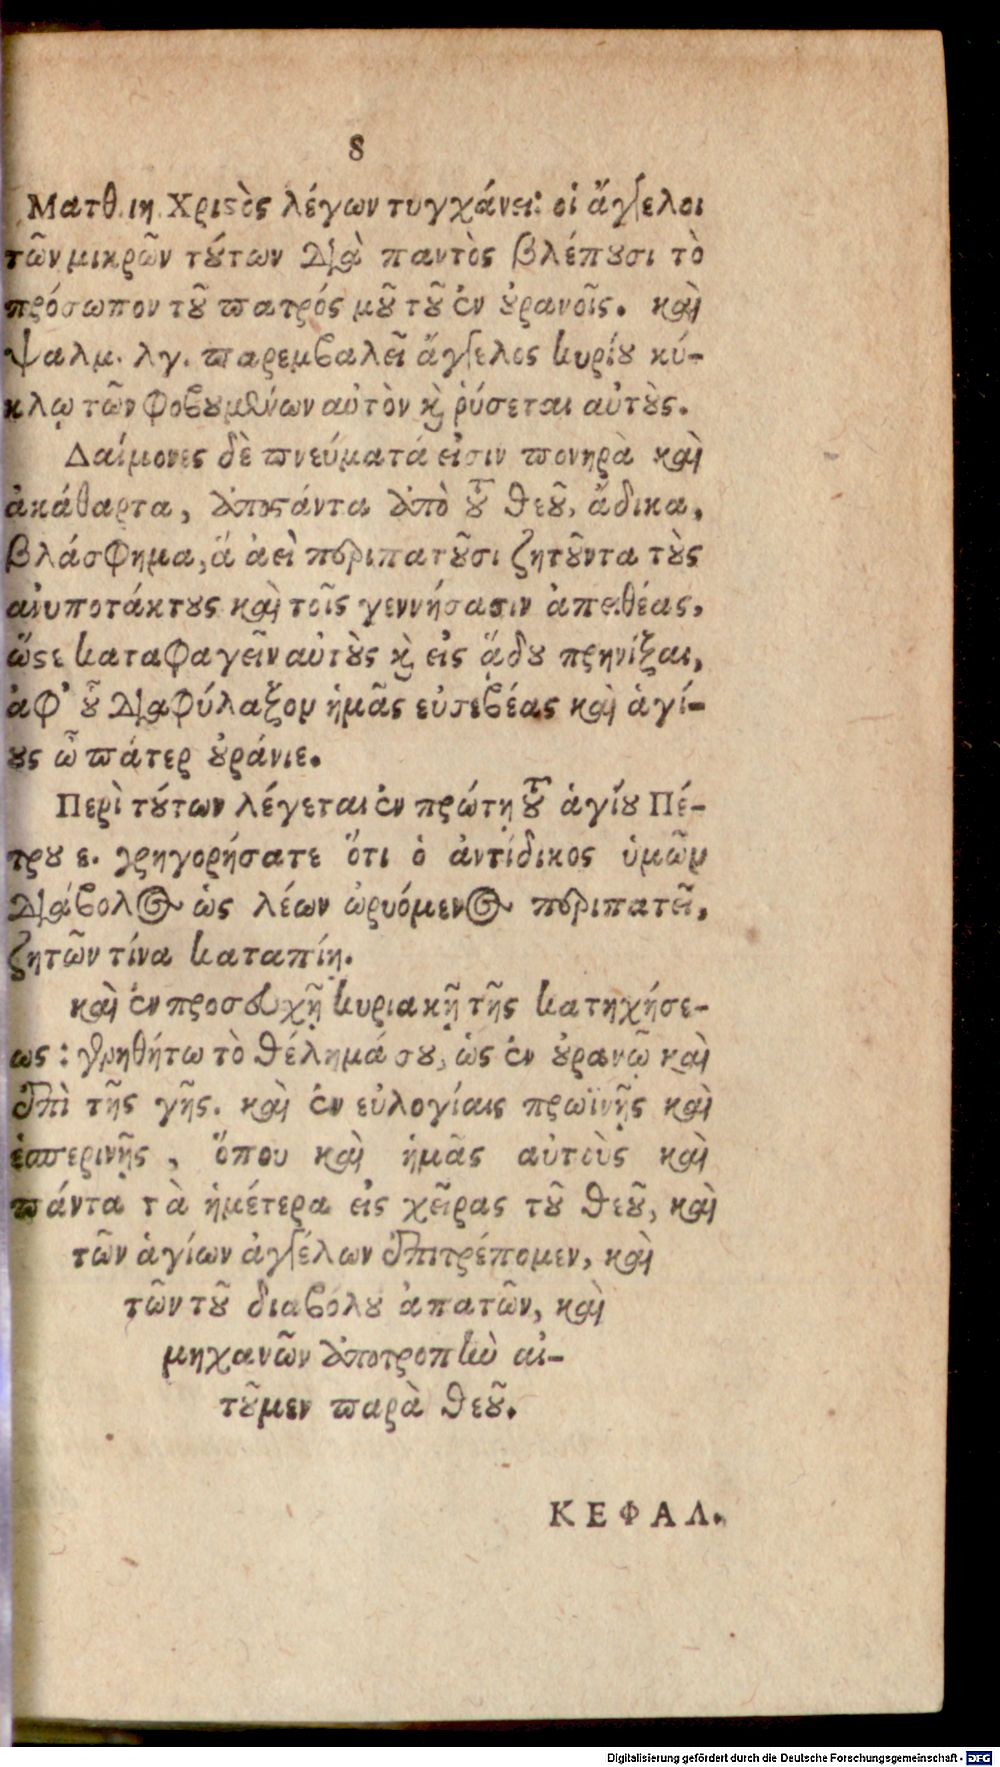 8
Ματθ. ιη. Χριϛὸς λέγων τυγχάνει: οἱ ἄγγελοι
τῶν μικρῶν τȣ́των διὰ παντὸς βλέπȣσι τὸ
πρόσωπον τȣ͂ πατρός μȣ͂ τȣ͂ ἐν ȣ̓ρανοῖς. καὶ
ψαλμ. λγ. παρεμβαλεῖ ἄγγελος κυρίȣ κύ-
κλῳ τῶν φοβȣμένων αὐτὸν ϗ̀ ῥύσεται αὐτȣ̀ς.
Δαίμονες δὲ πνεύματά εἰσιν πονηρὰ καὶ
ἀκάθαρτα, ἀποϛάντα ἀπὸ τȣ͂ θεȣ͂, ἄδικα,
βλάσφημα, ἃ ἀεὶ περιπατȣ͂σι ζητȣ͂ντα τȣ̀ς
ἀνυποτάκτȣς καὶ τοῖς γεννήσασιν ἀπειθέας,
ὥϛε καταφαγεῖν αὐτȣ̀ς ϗ̀ εἰς ᾅδȣ πρηνίξαι,
ἀφ’ ȣ̓͂ διαφύλαξον ἡμᾶς εὐσεβέας καὶ ἁγί-
ȣς ὦ πάτερ ȣ̓ράνιε.
Περὶ τȣ́των λέγεται ἐν πρώτῃ τȣ͂ ἁγίȣ Πέ-
τρȣ ε. γρηγορήσατε ὅτι ὁ ἀντίδικος ὑμῶν
διάβολος ὡς λέων ὠρυόμενος περιπατεῖ,
ζητῶν τίνα καταπίῃ.
καὶ ἐν προσευχῇ κυριακῇ τῆς κατηχήσε-
ως: γενηθήτω τὸ θέλημά σȣ, ὡς ἐν ȣ̓ρανῷ καὶ
ἐπὶ τῆς γῆς. καὶ ἐν εὐλογίαις πρωϊνῆς καὶ
ἑσπερινῆς, ὅπου καὶ ἡμᾶς αὐτοὺς καὶ
πάντα τὰ ἡμέτερα εἰς χεῖρας τȣ͂ θεȣ͂, καὶ
τῶν ἁγίων ἀγγέλων ἐπιτρέπομεν, καὶ
τῶν τȣ͂ διαβόλȣ ἀπατῶν, καὶ
μηχανῶν ἀποτροπὴν αἰ-
τȣ͂μεν παρὰ θεȣ͂.
ΚΕΦΑΛ.
Digitalisierung gefördert durch die Deutsche Forschungsgemeinschaft - DFG